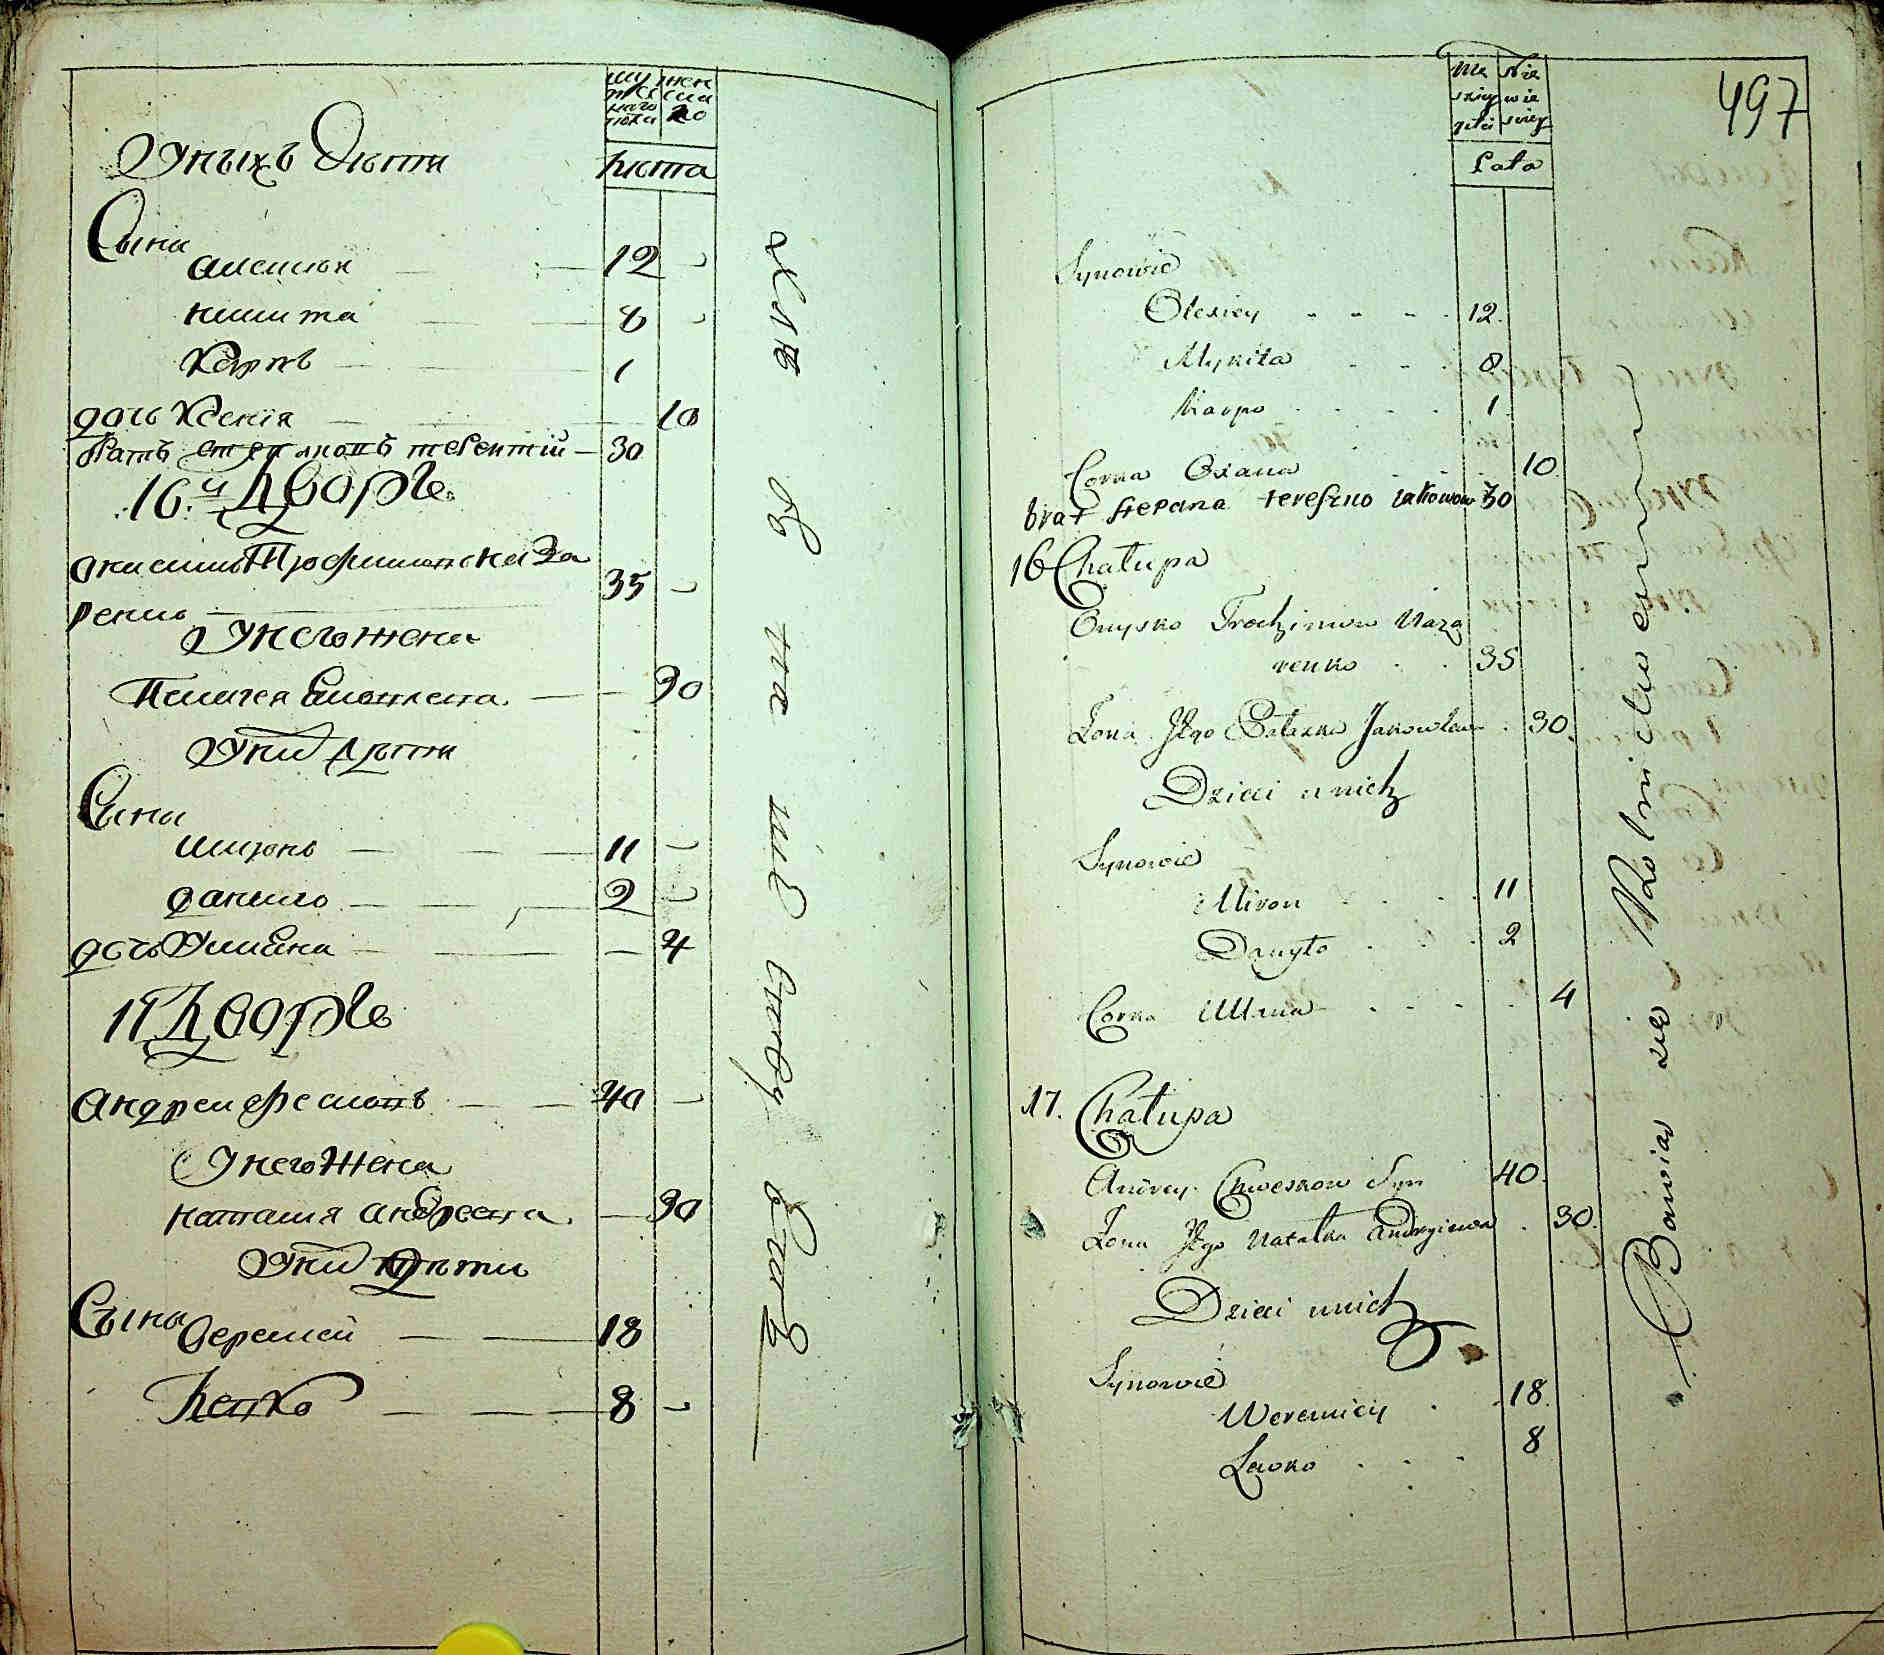 мужескаго пола
женскаго
лѣта
У ныхъ дѣти
Сыны
алексѣй 12
никита 8
Карпъ 1
дочь Ксенія 10
братъ терентій 30
16й Дворъ
онисимъ Трофимовъ наза
ренко 35
У него жена
Пелагея 30
У ний дѣти
Сыны
миронъ 11
данило 2
дочь Улиана 4
17 Дворъ
андрей 40
У него жена
наталия андреева 30
У ний дѣти
Сыны Веремей 18
Левко 8
497
Męszczyzn
Niewieścey
Lata
Synowie
Olexiey 12.
Mykita 8
Karpo 1
Corka Oxana 10
brat stepana tereszko 30
16 Chałupa
Onysko Trochimow Naza
renko 35
Żona Jego Palaszka Jakowlewa 30.
Dzieci u nich
Synowie
Miron 11
Danyło 2
Corka Ullana 4
17. Chałupa
Andrey Syn 40.
Żona Jego Natalka Andrzeiewa 30.
Dzieci u nich
Synowie
Weremiey 18.
Lewko 8
Bawią się Rolnictwem